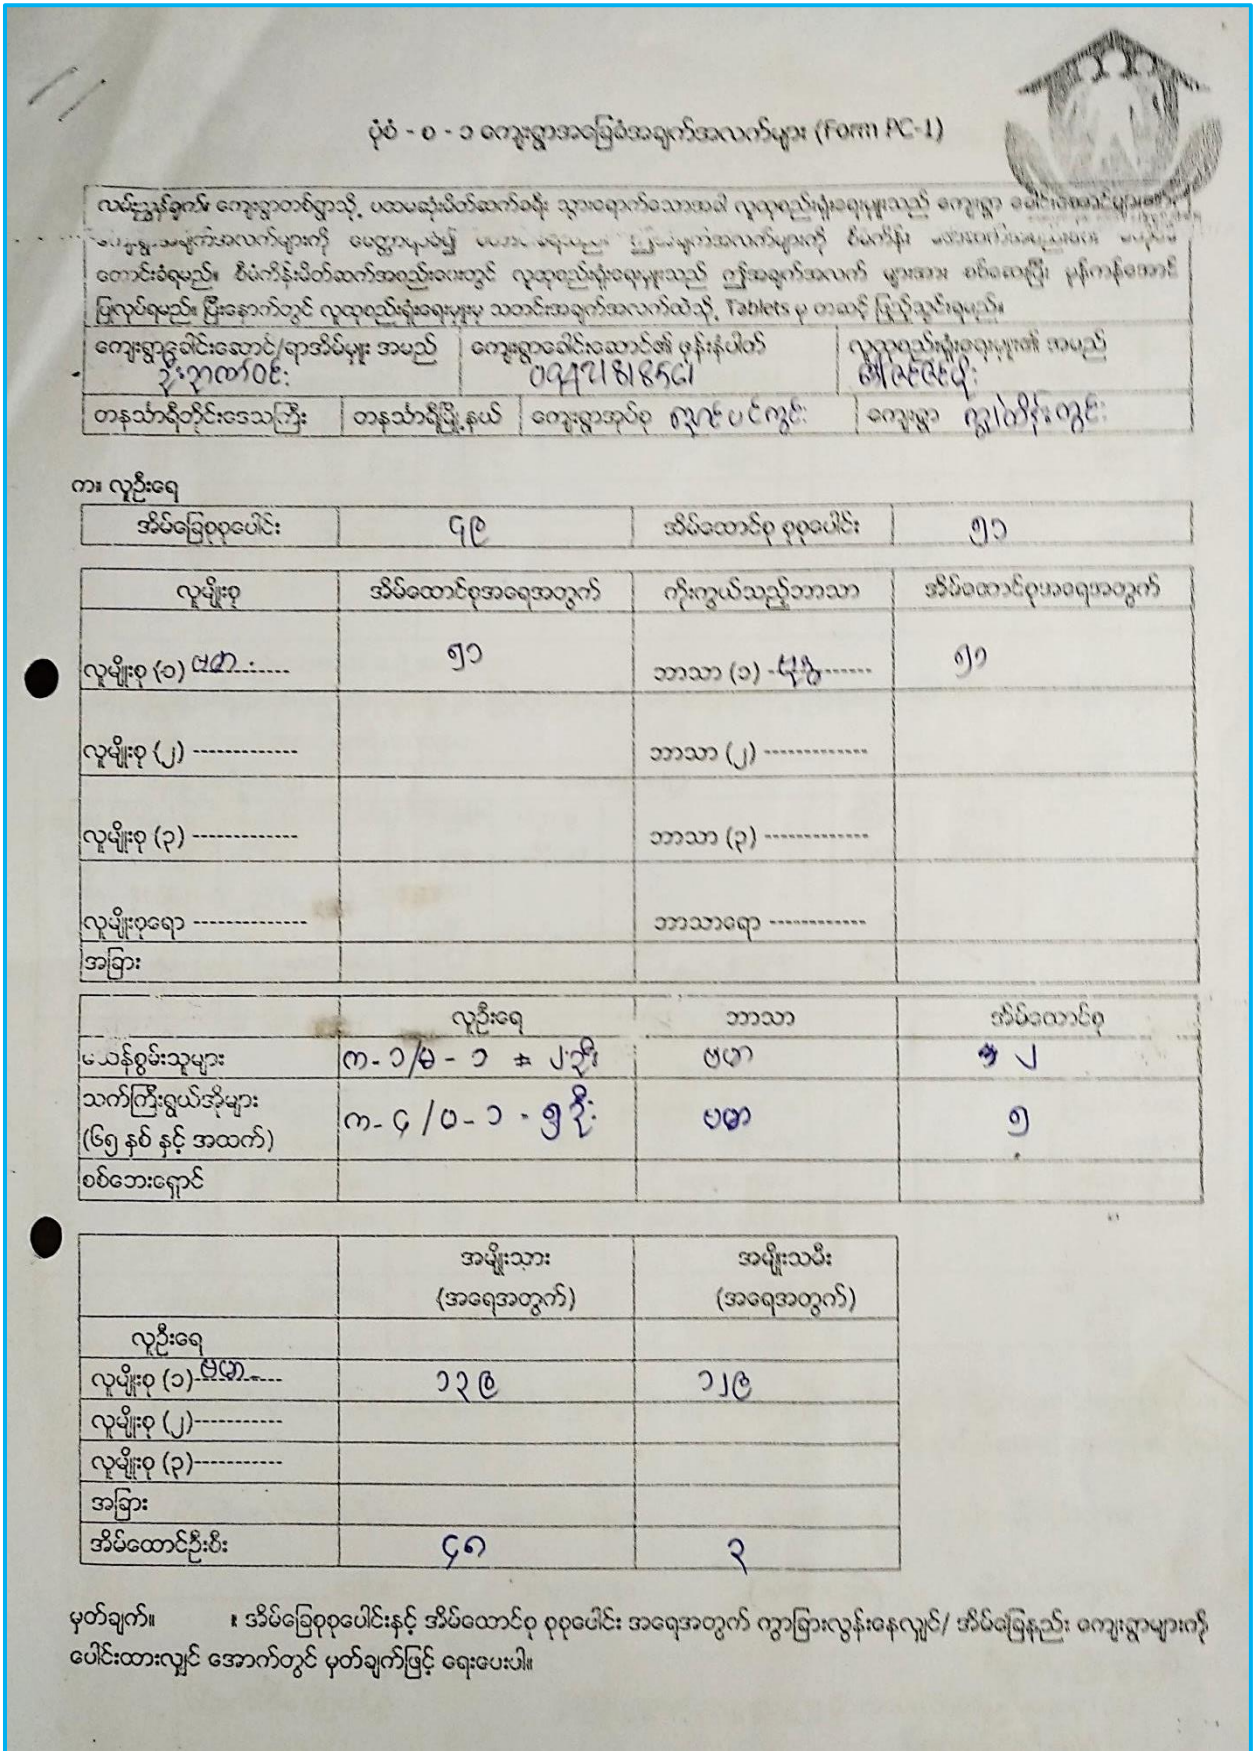 ပုံစံ - စ - ၁ ကျေးရွာအခြေခံအချက်အလက်များ (Form PC-1)
လမ်းညွှန်ချက်။ ကျေးရွာတစ်ရွာသို့ ပထမဆုံးမိတ်ဆက်ခရီး သွားရောက်သောအခါ လူထုစည်းရုံးရေးမှူးသည် ကျေးရွာ ခေါင်းဆောင်များ
ကျေးရွာအချက်အလက်များကို မေတ္တာရပ်ခံ၍ ဤအချက်အလက်များကို စီမံကိန်း
တောင်းခံရမည်။ စီမံကိန်းမိတ်ဆက်အစည်းဝေးတွင် လူထုစည်းရုံးရေးမှူးသည် ဤအချက်အလက် များအား စစ်ဆေးပြီး မှန်ကန်အောင်
ပြုလုပ်ရမည်။ ပြီးနောက်တွင် လူထုစည်းရုံးရေးမှူးမှ သတင်းအချက်အလက်ထဲသို့ Tablets မှ တဆင့် ဖြည့်သွင်းရမည်။
ကျေးရွာခေါင်းဆောင်/ရာအိမ်မှူး အမည် ကျေးရွာခေါင်းဆောင်၏ ဖုန်းနံပါတ် လူထုစည်းရုံးရေးမှူး၏ အမည်
ဦးဉာဏ်ဝင်း
တနင်္သာရီတိုင်းဒေသကြီး တနင်္သာရီမြို့နယ် ကျေးရွာအုပ်စု ကျေးရွာ
က။ လူဦးရေ
အိမ်ခြေစုစုပေါင်း ၄၉ အိမ်ထောင်စု စုစုပေါင်း ၅၁
လူမျိုးစု အိမ်ထောင်စုအရေအတွက် ကိုးကွယ်သည့်ဘာသာ အိမ်ထောင်စုအရေအတွက်
လူမျိုးစု (၁) ဗမာ ၅၁ ဘာသာ (၁) ဗုဒ္ဓ ၅၁
လူမျိုးစု (၂) ------------- ဘာသာ (၂) -------------
လူမျိုးစု (၃) ------------- ဘာသာ (၃) -------------
လူမျိုးစုရော -------------- ဘာသာရော ------------
အခြား
လူဦးရေ ဘာသာ အိမ်ထောင်စု
မသန်စွမ်းသူများ က - ၁/မ - ၁ = ၂ ဦး ဗမာ ၂
သက်ကြီးရွယ်အိုများ
(၆၅ နှစ် နှင့် အထက်) က - ၄ / မ - ၁ - ၅ ဦး ဗမာ ၅
စစ်ဘေးရှောင်
အမျိုးသား အမျိုးသမီး
(အရေအတွက်) (အရေအတွက်)
လူဦးရေ
လူမျိုးစု (၁) ဗမာ ၁၃၉ ၁၂၉
လူမျိုးစု (၂)-----------
လူမျိုးစု (၃)-----------
အခြား
အိမ်ထောင်ဦးစီး ၄၈ ၃
မှတ်ချက်။ ။ အိမ်ခြေစုစုပေါင်းနှင့် အိမ်ထောင်စု စုစုပေါင်း အရေအတွက် ကွာခြားလွန်းနေလျှင်/ အိမ်ခြေနည်း ကျေးရွာများကို
ပေါင်းထားလျှင် အောက်တွင် မှတ်ချက်ဖြင့် ရေးပေးပါ။